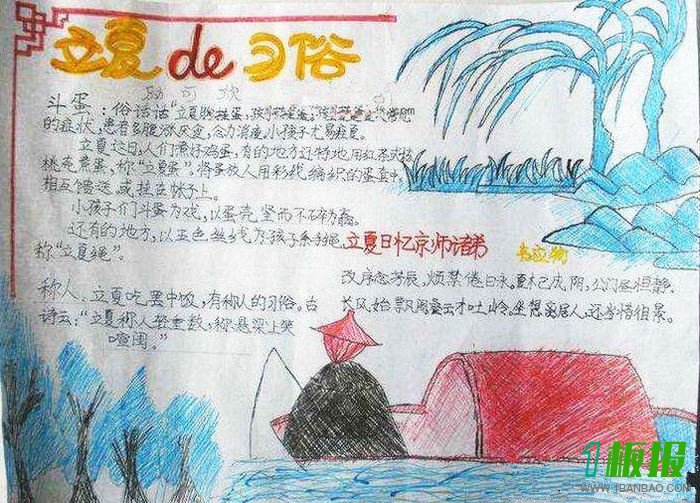 立夏de习俗
斗蛋：俗话话“立夏胸挂蛋，孩子
的症状，患者多腹涨厌食，乏力消瘦，小孩子尤易疰夏。
立夏这日，人们煮好鸡蛋，有的地方还特地用红茶或
桃壳煮蛋，称“立夏蛋”。将蛋放入用彩线编织的蛋套中，
相互馈送，或挂在帐子上。
小孩子们斗蛋为戏，以蛋壳坚而不碎为赢。
还有的地方，以五色丝线为孩子系绳，
称“立夏绳”。
立夏日忆京师诸弟
韦应物
改序念芳辰，烦襟倦日永。夏木已成阴，公门昼恒静。
长风始飘阁，叠云才吐岭。坐想离居人，还当惜徂景。
称人：立夏吃罢中饭，有称人的习俗。古
诗云：“立夏称人轻重数，称悬梁上笑
喧闺。”
1板报
WWW.1BANBAO.COM